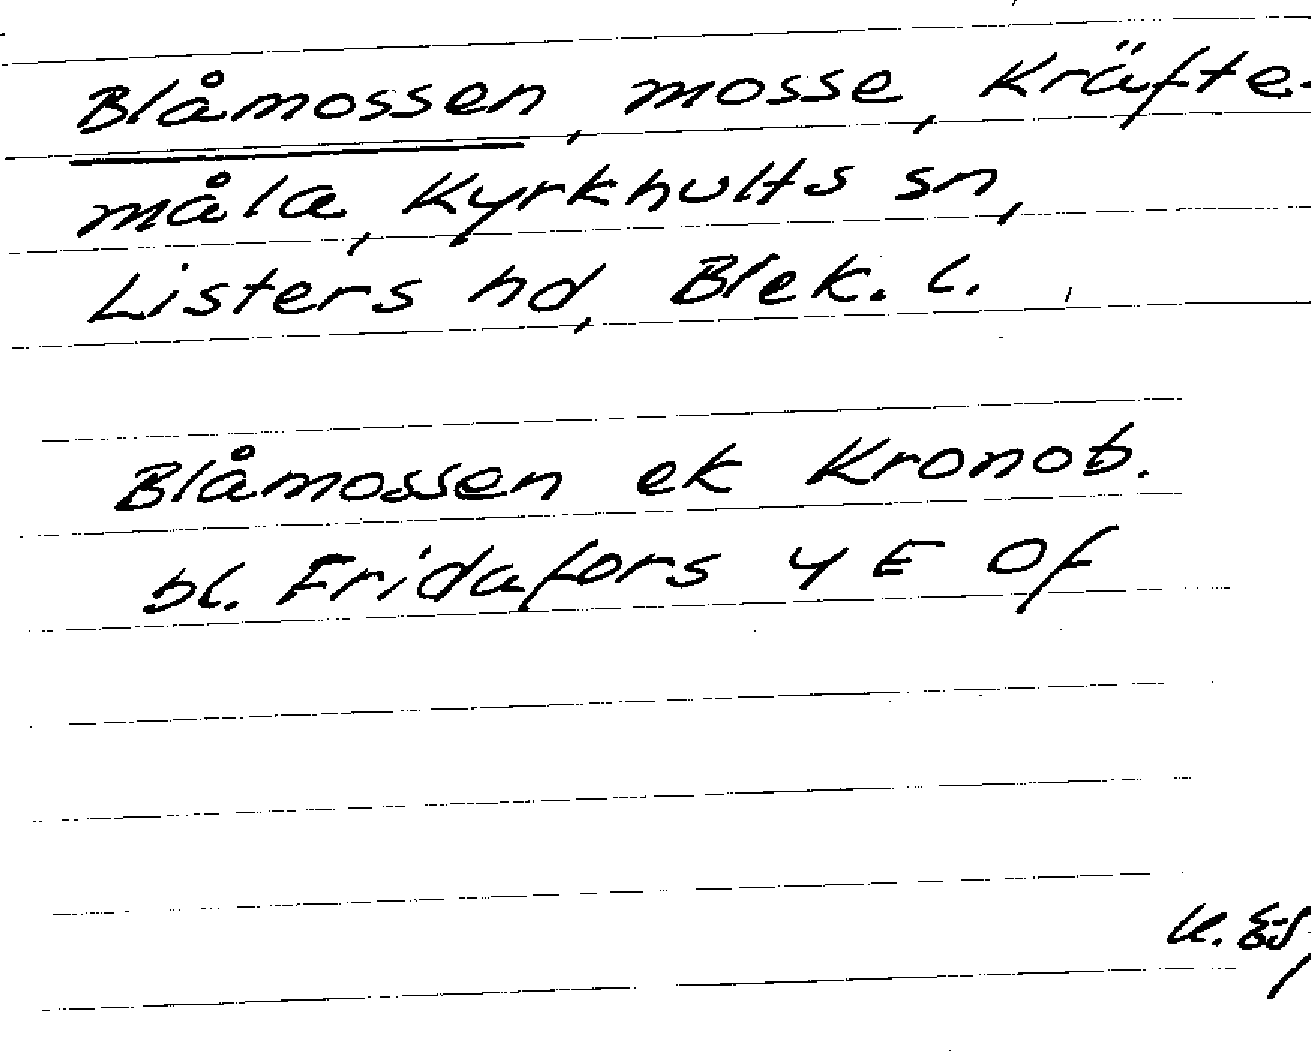 Blåmossen, mosse, Kräfte-
måla, Kyrkhults sn,
Listers hd, Blek. l.
Blåmossen ek Kronob.
bl. Fridafors 4 E Of